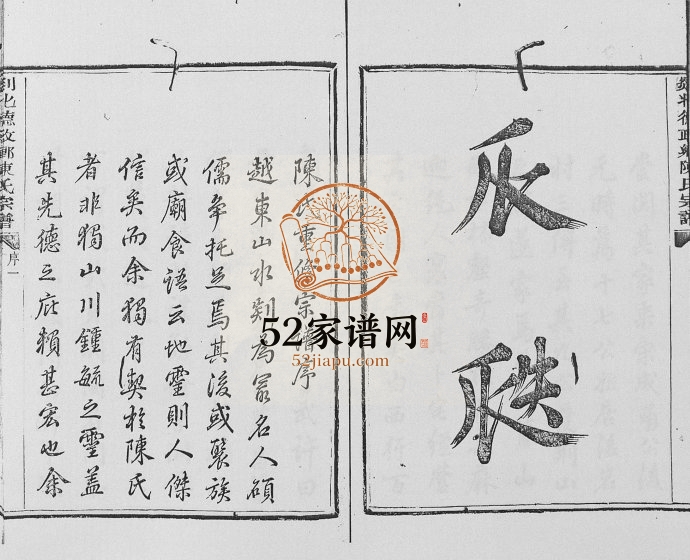 瓜瓞
陳氏重修宗譜序
越東山水剡為最名人碩
儒爭托足焉其後或聚族
或廟食語云地靈則人傑
信矣而余獨有契於陳氏
者非獨山川鍾毓之靈蓋
其先德之庇賴甚宏也余
剡北德政鄉陳氏宗譜
序一
52家谱网
52jiapu.com